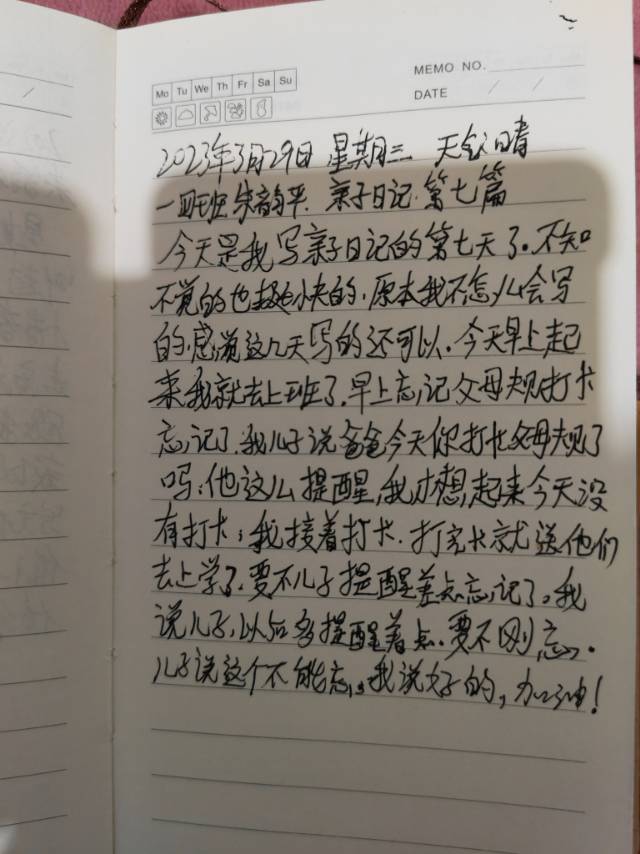 MEMO NO.
Mo Tu We Th Fr Sa Su
DATE / /
2023年3月29日 星期三 天气:晴
一四班 朱韵平. 亲子日记.第七篇
今天是我写亲子日记的第七天了。不知
不觉的也挺快的.原本我不怎么会写
的.感觉这几天写的还可以.今天早上起
来我就去上班了.早上忘记父母规打卡
忘记了.我儿子说爸爸今天你打卡父母规了
吗.他这么提醒,我才想起来今天没
有打卡;我接着打卡.打完卡就送他们
去上学了.要不儿子提醒差点忘记了。我
说儿子,以后多提醒着点.要不刚忘.
儿子说这个不能忘.我说好的,加油!